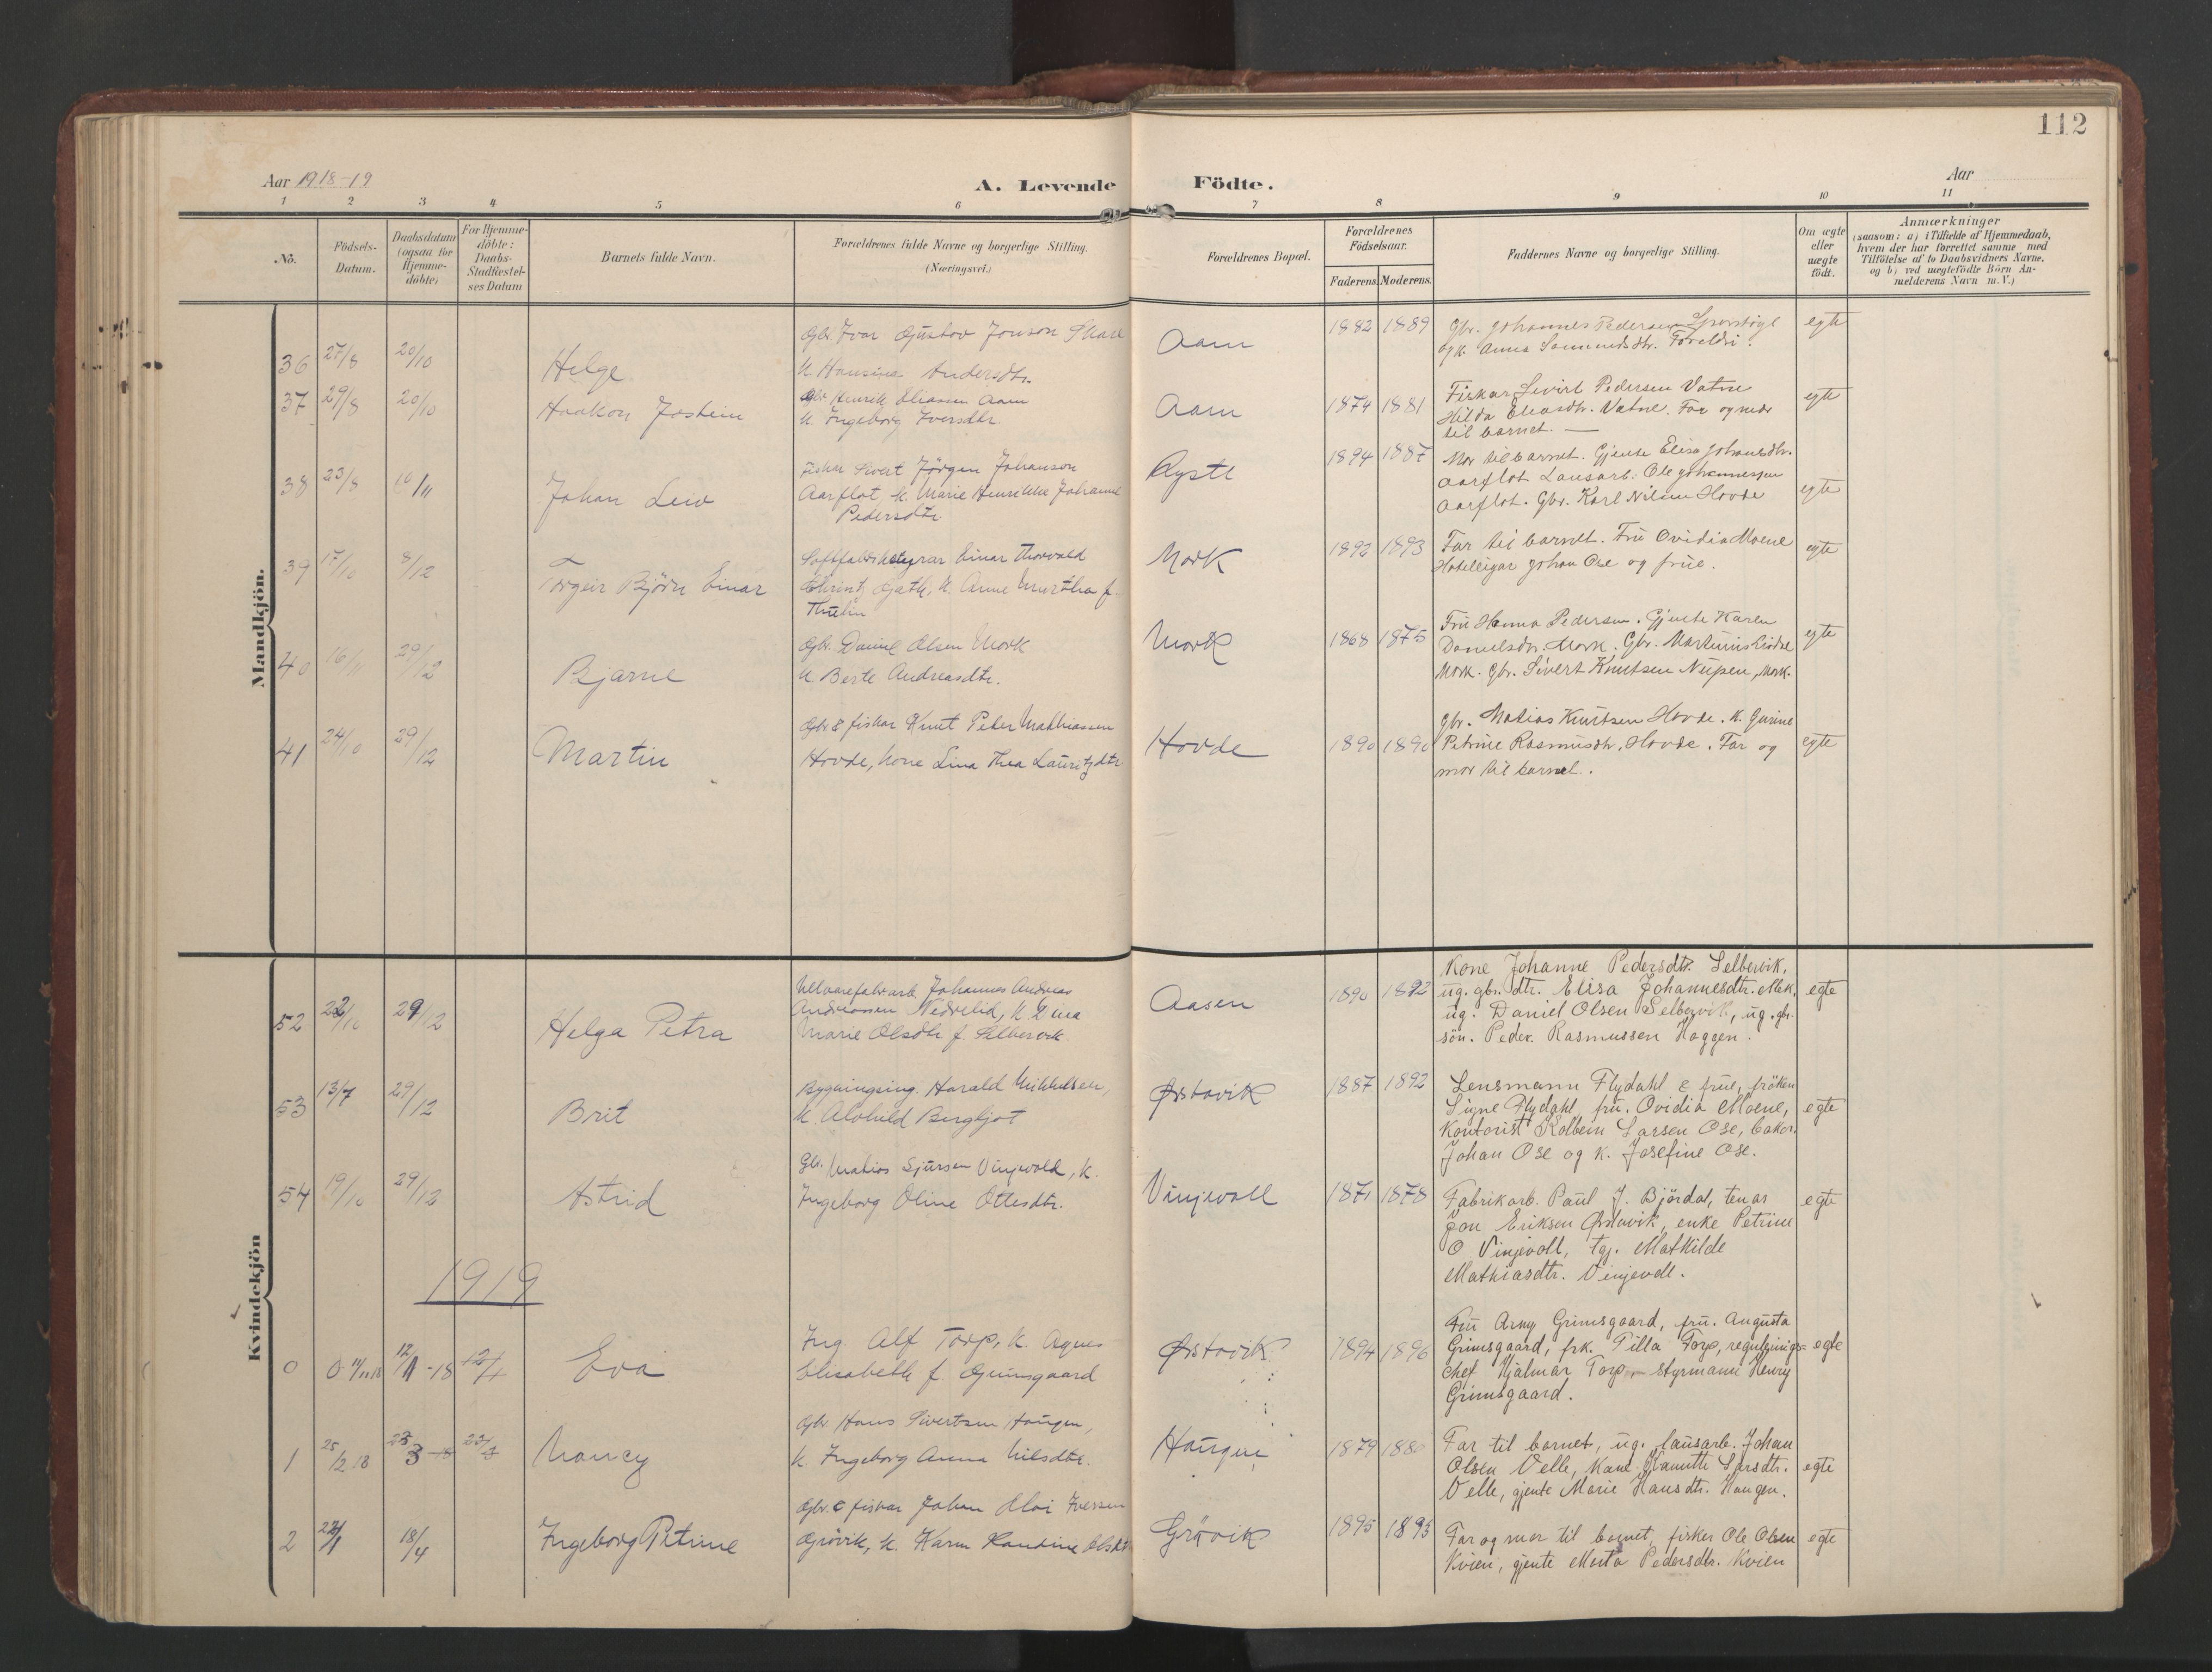 112
Aar 1918-19
A. Levende Födte.
Aar
1 2 3 4 5 6 7 8 9 10 11
No.
Födsels-Datum.
Daabsdatum (ogsaa for Hjemme-döbte)
For Hjemme-döbte: Daabs-Stadfæstel-ses Datum
Barnets fulde Navn.
Forældrenes fulde Navne og borgerlige Stilling.
(Næringsvei.)
Forældrenes Bopæl.
Forældrenes Födselsaar.
Faderens. Moderens.
Faddernes Navne og borgerlige Stilling.
Om ægte eller uægte födt.
Anmærkninger
(saasom: a) i Tilfælde af Hjemmedaab,
hvem der har forrettet samme med
Tilföielse af to Daabsvidners Navne.
og b) ved uægtefödte Börn An-
melderens Navn m.V.)
Mandkjön.
36 27/8 20/10 Helge
Gbr. Ivar Gustav Jonson
k Hansine Andersdtr.
Aam 1882 1889
Gbr. Johannes Pedersen
og k. Anna Foreldri. egte
37 29/8 20/10 Haakon Jostein
Gbr Henrik Eliassen Aam
k. Ingeborg Iversdtr.
Aam 1874 1881
Fiskar Sivert Pedersen Vatne
Hilda Eliasdtr. Vatne. Far og mor
til barnet. — egte
38 23/8 10/11 Johan Leiv
Fiskar Sivert Jörgen Johanson
Aarflot k. Marie Henrikke Johanne
Pedersdtr
Rystl 1894 1887
Mor til barnet. Gjente Elisa Johansdtr.
Aarflot Lausarb. Ole Johannessen
Aarflot. Gbr. Karl Nilsen Hovde egte
39 17/10 8/12 Torgeir Björn Einar
Einar Thorvald
k. Anne Martha f.
Thulin
Mork 1892 1893
Far til barnet. Frü Ovidia Moene
Hotelleigar Johan Ose og früe. egte
40 16/11 29/12 Bjarne
Gbr. Daniel Olsen Mork
k Berte Andreasdtr.
Mork 1868 1875
Frü Hanna Pedersen. Gjente Karen
Danielsdtr. Mork. Gbr. Martinus
Mork. Gbr. Sivert Knutsen Nupen, Mork. egte
41 24/10 29/12 Martin
Gbr & fiskar Knut Peter Mathiassen
Hovde, kone Lina Thea Lauritzdtr
Hovde 1890 1890
Gbr. Matias Knutsen Hovde. k. Gurine
Petrine Rasmusdtr. Hovde. Far og
mor til barnet. egte
Kvindekjön
52 22/10 29/12 Helga Petra
Johannes Andreas
Andreassen Nedrelid, k.
Marie Olsdtr f. Selbervik
Aasen 1890 1892
Kone Johanne Pedersdtr. Selbervik,
ug. gbr. dtr. Elisa Johannesdtr. Mek,
ug. Daniel Olsen Selbervik, ug. gbr.
sön. Peder Rasmussen Haggen. egte
53 13/7 29/12 Brit
Bygningsing. Harald Mikkelsen,
k. Alvhild Bergljot
Ørstavik 1887 1892
Lensmann Flydahl & früe, fröken
Signe Flydahl, frü. Ovidia Moene,
Kontorist Kolbein Larsen Ose, bakar.
Johan Ose og k. Josefine Ose. egte
54 19/10 29/12 Astrid
Gbr. Matias Sjursen Vinjevold, k.
Ingeborg Oline Ottesdtr.
Vinjevoll 1871 1878
Fabrikarb. Paul J. Björdal, tenar
Jon Eriksen Ørstavik, enke Petrine
O. Vinjevoll, tgj. Mathilde
Mathiasdtr. Vinjevoll. egte
1919
0 12/1 -18 12/1 Eva
Ing. Alf Torp, k. Agnes
Elisabeth f. Grimsgaard
Ørstavik 1894 1896
Frü Army Grimsgaard, frü. Augusta
Grimsgaard, frk. Tilla Torp, regulerings-
chef Hjalmar Torp, styrmann Henry
Grimsgaard. egte
1 25/2 18 23/3 18 23/3 Nancy
Gbr. Hans Sivertsen Haugen,
k. Ingeborg Anna Nilsdtr.
Haugen 1879 1880
Far til barnet, ug. lausarb. Johan
Olsen Velle, Kone Larsdtr.
Velle, gjente Marie Hansdtr. Haugen. egte
2 22/1 18/4 Ingeborg Petrine
Gbr. & fiskar Johan Iversen
Grövik, k. Karen Olsdtr
Grövik 1895 1895
Far og mor til barnet, fisker Ole Olsen
Kvien, gjente Marta Pedersdtr. Kvien egte